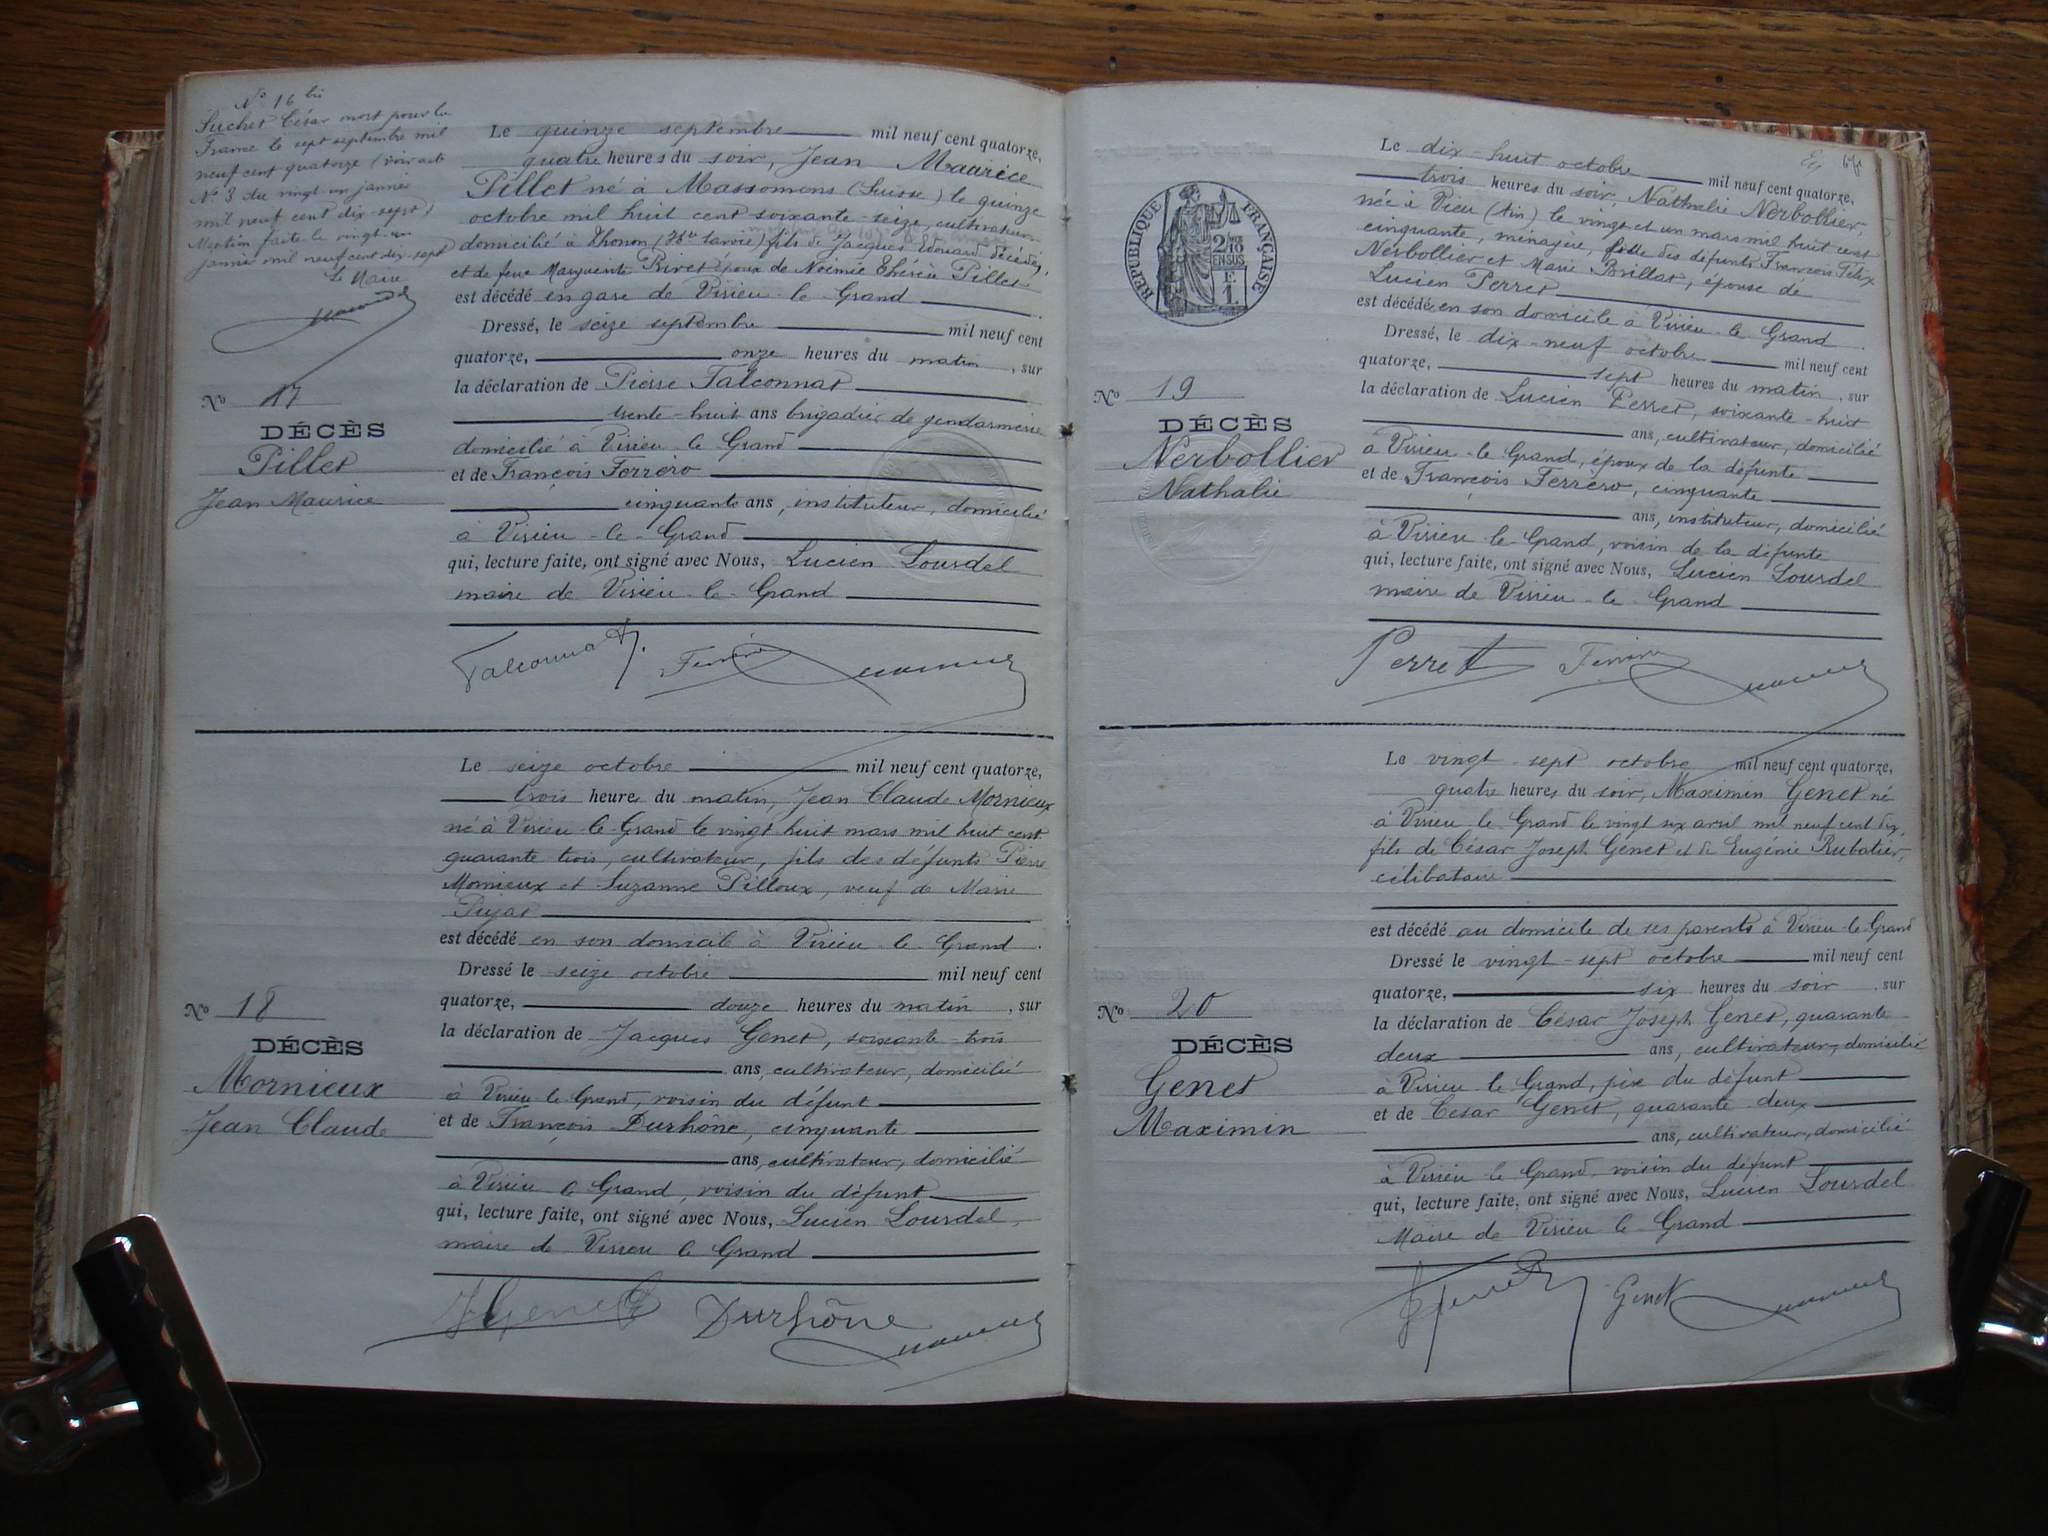 N° 16 bis
Suchet César mort pour la
France le sept septembre mil
neuf cent quatorze (voir acte
N° 3 du vingt un janvier
mil neuf cent dix-sept)
Mention faite le vingt-un
janvier mil neuf cent dix-sept
Le Maire
Le quinze septembre mil neuf cent quatorze,
quatre heures du soir, Jean Maurice
Pillet né à Massomens (Suisse) le quinze
octobre mil huit cent soixante-seize, cultivateur
domicilié à Thonon (Hte Savoie) fils de Jacques Edouard décédé,
et de feue Marguerite époux de Noémie Pillet
est décédé en gare de Virieu-le-Grand
Dressé, le seize septembre mil neuf cent
quatorze, onze heures du matin, sur
la déclaration de Pierre Falconnat
trente-huit ans brigadier de gendarmerie
domicilié à Virieu-le-Grand
et de François Ferrero
cinquante ans, instituteur, domicilié
à Virieu-le-Grand
qui, lecture faite, ont signé avec Nous, Lucien Lourdel
maire de Virieu-le-Grand
N° 17
DÉCÈS
Pillet
Jean Maurice
Falconnat
Le seize octobre mil neuf cent quatorze,
trois heures du matin, Jean Claude Mornieux
né à Virieu-le-Grand le vingt huit mars mil huit cent
quarante trois, cultivateur, fils des défunts Pierre
Mornieux et Suzanne Pilloux, veuf de Marie
est décédé en son domicile à Virieu-le-Grand.
Dressé le seize octobre mil neuf cent
quatorze, douze heures du matin, sur
la déclaration de Jacques Genet, soixante-trois
ans, cultivateur, domicilié
à Virieu-le-Grand, voisin du défunt
et de François Durhône, cinquante
ans, cultivateur, domicilié
à Virieu le Grand, voisin du défunt
qui, lecture faite, ont signé avec Nous, Lucien Lourdel,
maire de Virieu le Grand
N° 18
DÉCÈS
Mornieux
Jean Claude
JGenet Durhône
RÉPUBLIQUE FRANÇAISE
2/10
EN SUS
F.
1.
Le dix-huit octobre mil neuf cent quatorze,
trois heures du soir, Nathalie Nerbollier,
née à Vieu (Ain) le vingt et un mars mil huit cent
cinquante, ménagère, fille des défunts François Félix
Nerbollier et Marie Brillat, épouse de
Lucien Perret
est décédée en son domicile à Virieu-le-Grand.
Dressé, le dix-neuf octobre mil neuf cent
quatorze, sept heures du matin, sur
la déclaration de Lucien Perret, soixante-huit
ans, cultivateur, domicilié
à Virieu-le-Grand, époux de la défunte
et de François Ferrero, cinquante
ans, instituteur, domicilié
à Virieu-le-Grand, voisin de la défunte
qui, lecture faite, ont signé avec Nous, Lucien Lourdel
maire de Virieu-le-Grand
N° 19
DÉCÈS
Nerbollier
Nathalie
Perret
Le vingt-sept octobre mil neuf cent quatorze,
quatre heures du soir, Maximin Genet né
à Virieu le Grand le vingt six avril mil neuf cent dix,
fils de César Joseph Genet et de Eugénie Rubatier,
célibataire
est décédé au domicile de ses parents à Virieu-le-Grand
Dressé le vingt-sept octobre mil neuf cent
quatorze, six heures du soir, sur
la déclaration de César Joseph Genet, quarante
deux ans, cultivateur, domicilié
à Virieu-le-Grand, père du défunt
et de César Genet, quarante-deux
ans, cultivateur, domicilié
à Virieu le Grand voisin du défunt
qui, lecture faite, ont signé avec Nous, Lucien Lourdel
Maire de Virieu le Grand
N° 20
DÉCÈS
Genet
Maximin
Genet